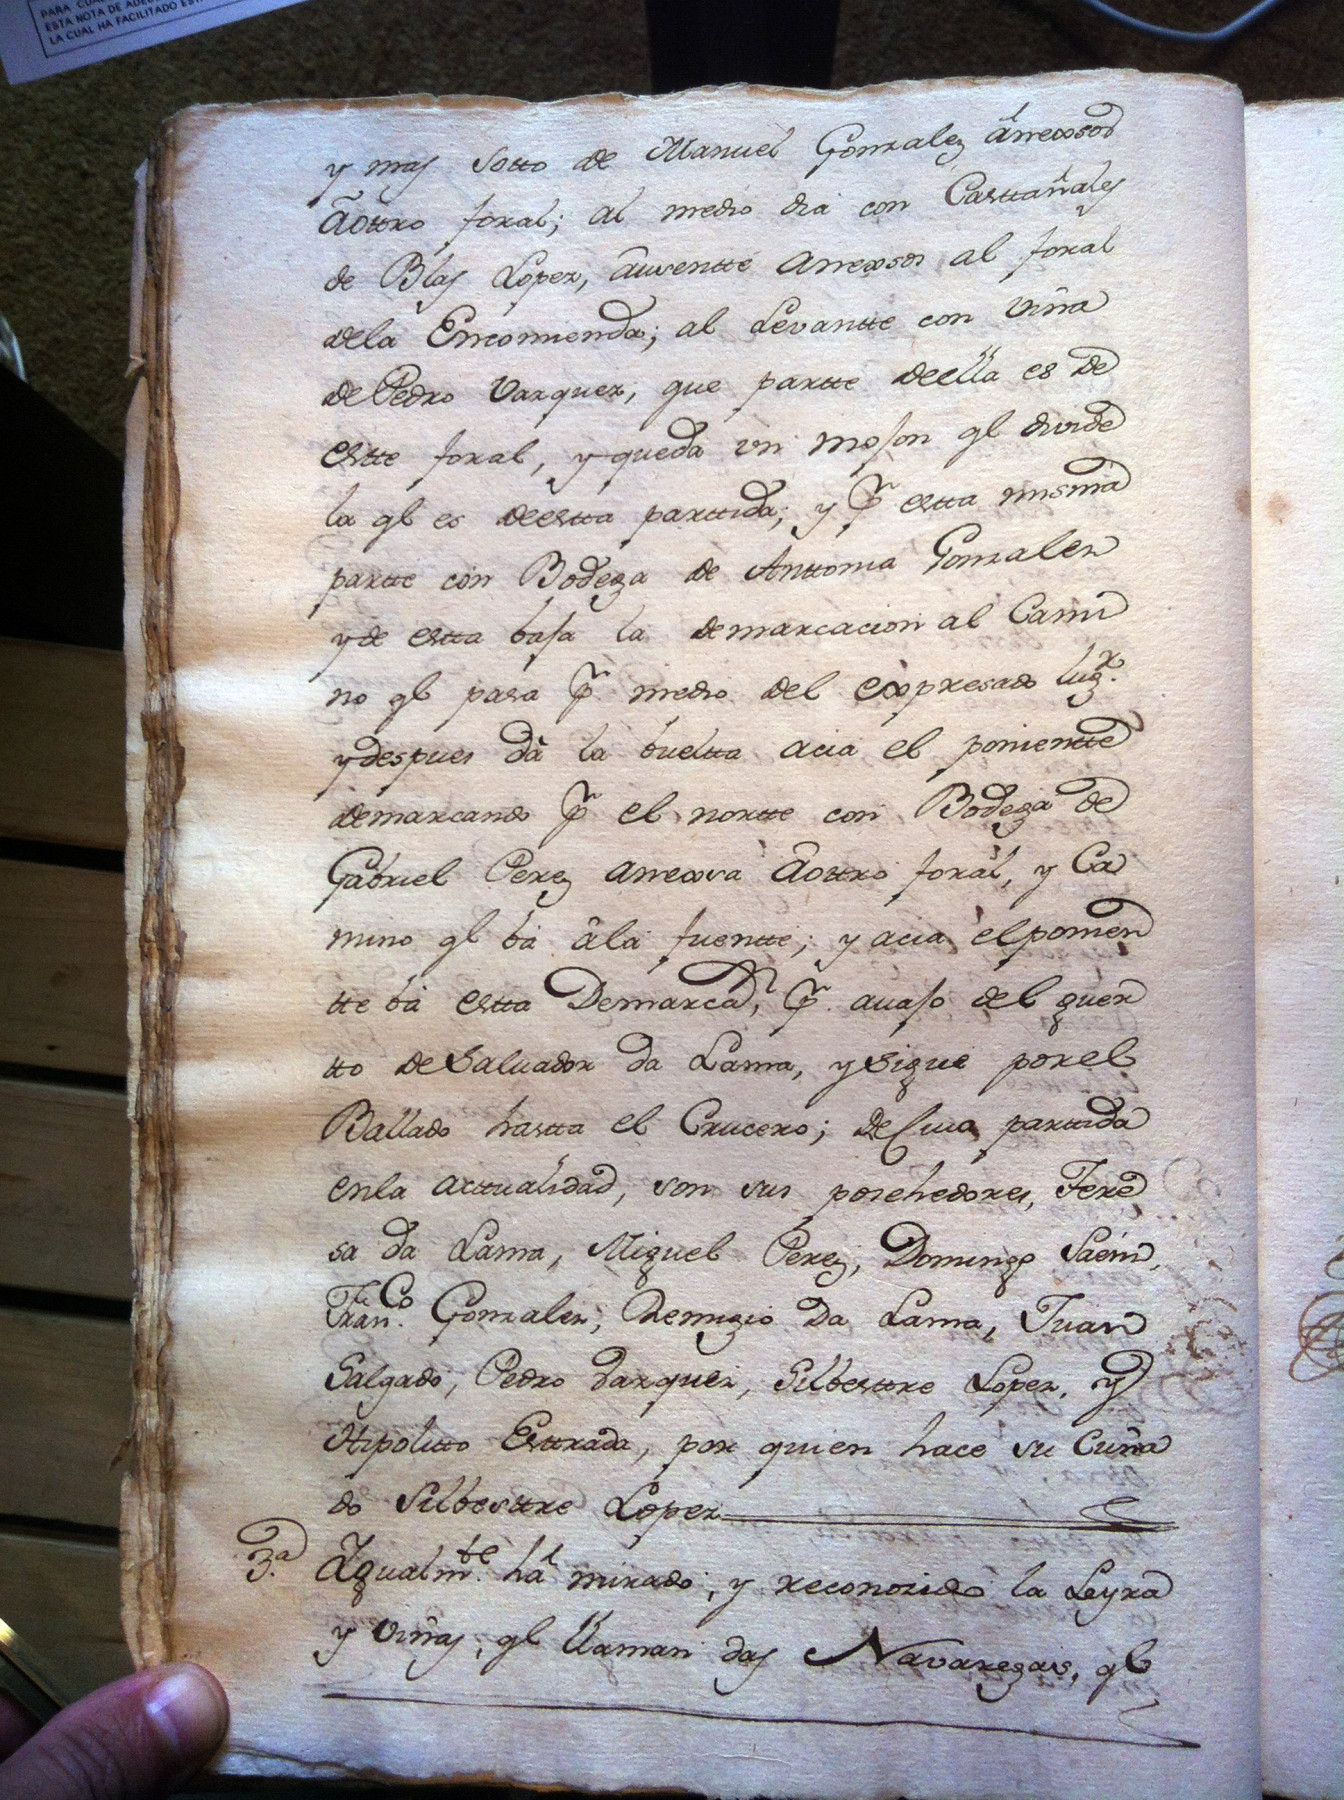 PARA CUAL
ESTA NOTA DE ADEU
LA CUAL HA FACILITADO EST
y mas sotto de Manuel Gonzalez ânnexsos
âottro foral; al medio dia con Casttañales
de Blas Lopez, âuventte annexsos al foral
dela Encomienda; al Levantte con viña
de Pedro Vazquez, que partte deella es de
estte foral, y queda un moson ql divide
la ql es deestta parttida; y pr estta misma
partte con Bodega de Anttonia Gonzalez
y de estta basa la demarcacion al Cami
no ql pasa pr medio del expresado lugr.
y despues dà la bueltta acia el ponientte
demarcando pr el nortte con Bodega de
Gabriel Perez annexsa âottro foral, y Ca
mino ql bà âla fuentte; y acia el ponien
tte bà estta Demarcan, pr. avaso del guer
tto de Salvador da Lama, y sigue por el
Ballado hastta el Crucero; de Cuia parttida
enla acttualidad, son sus posehedores, Tere
sa da Lama, Miguel Perez, Domingo Saem,
Franco. Gonzalez, Remigio Da Lama, Juan
Salgado, Pedro Vazquez, Silbesttre Lopez, y
Hipolitto Esttrada, por quien hace su Cuña
do Silbesttre Lopez
3.a Igualmte. hàl mirado, y reconozido la Leyra
y viñas, ql llaman das Navaregas, ql